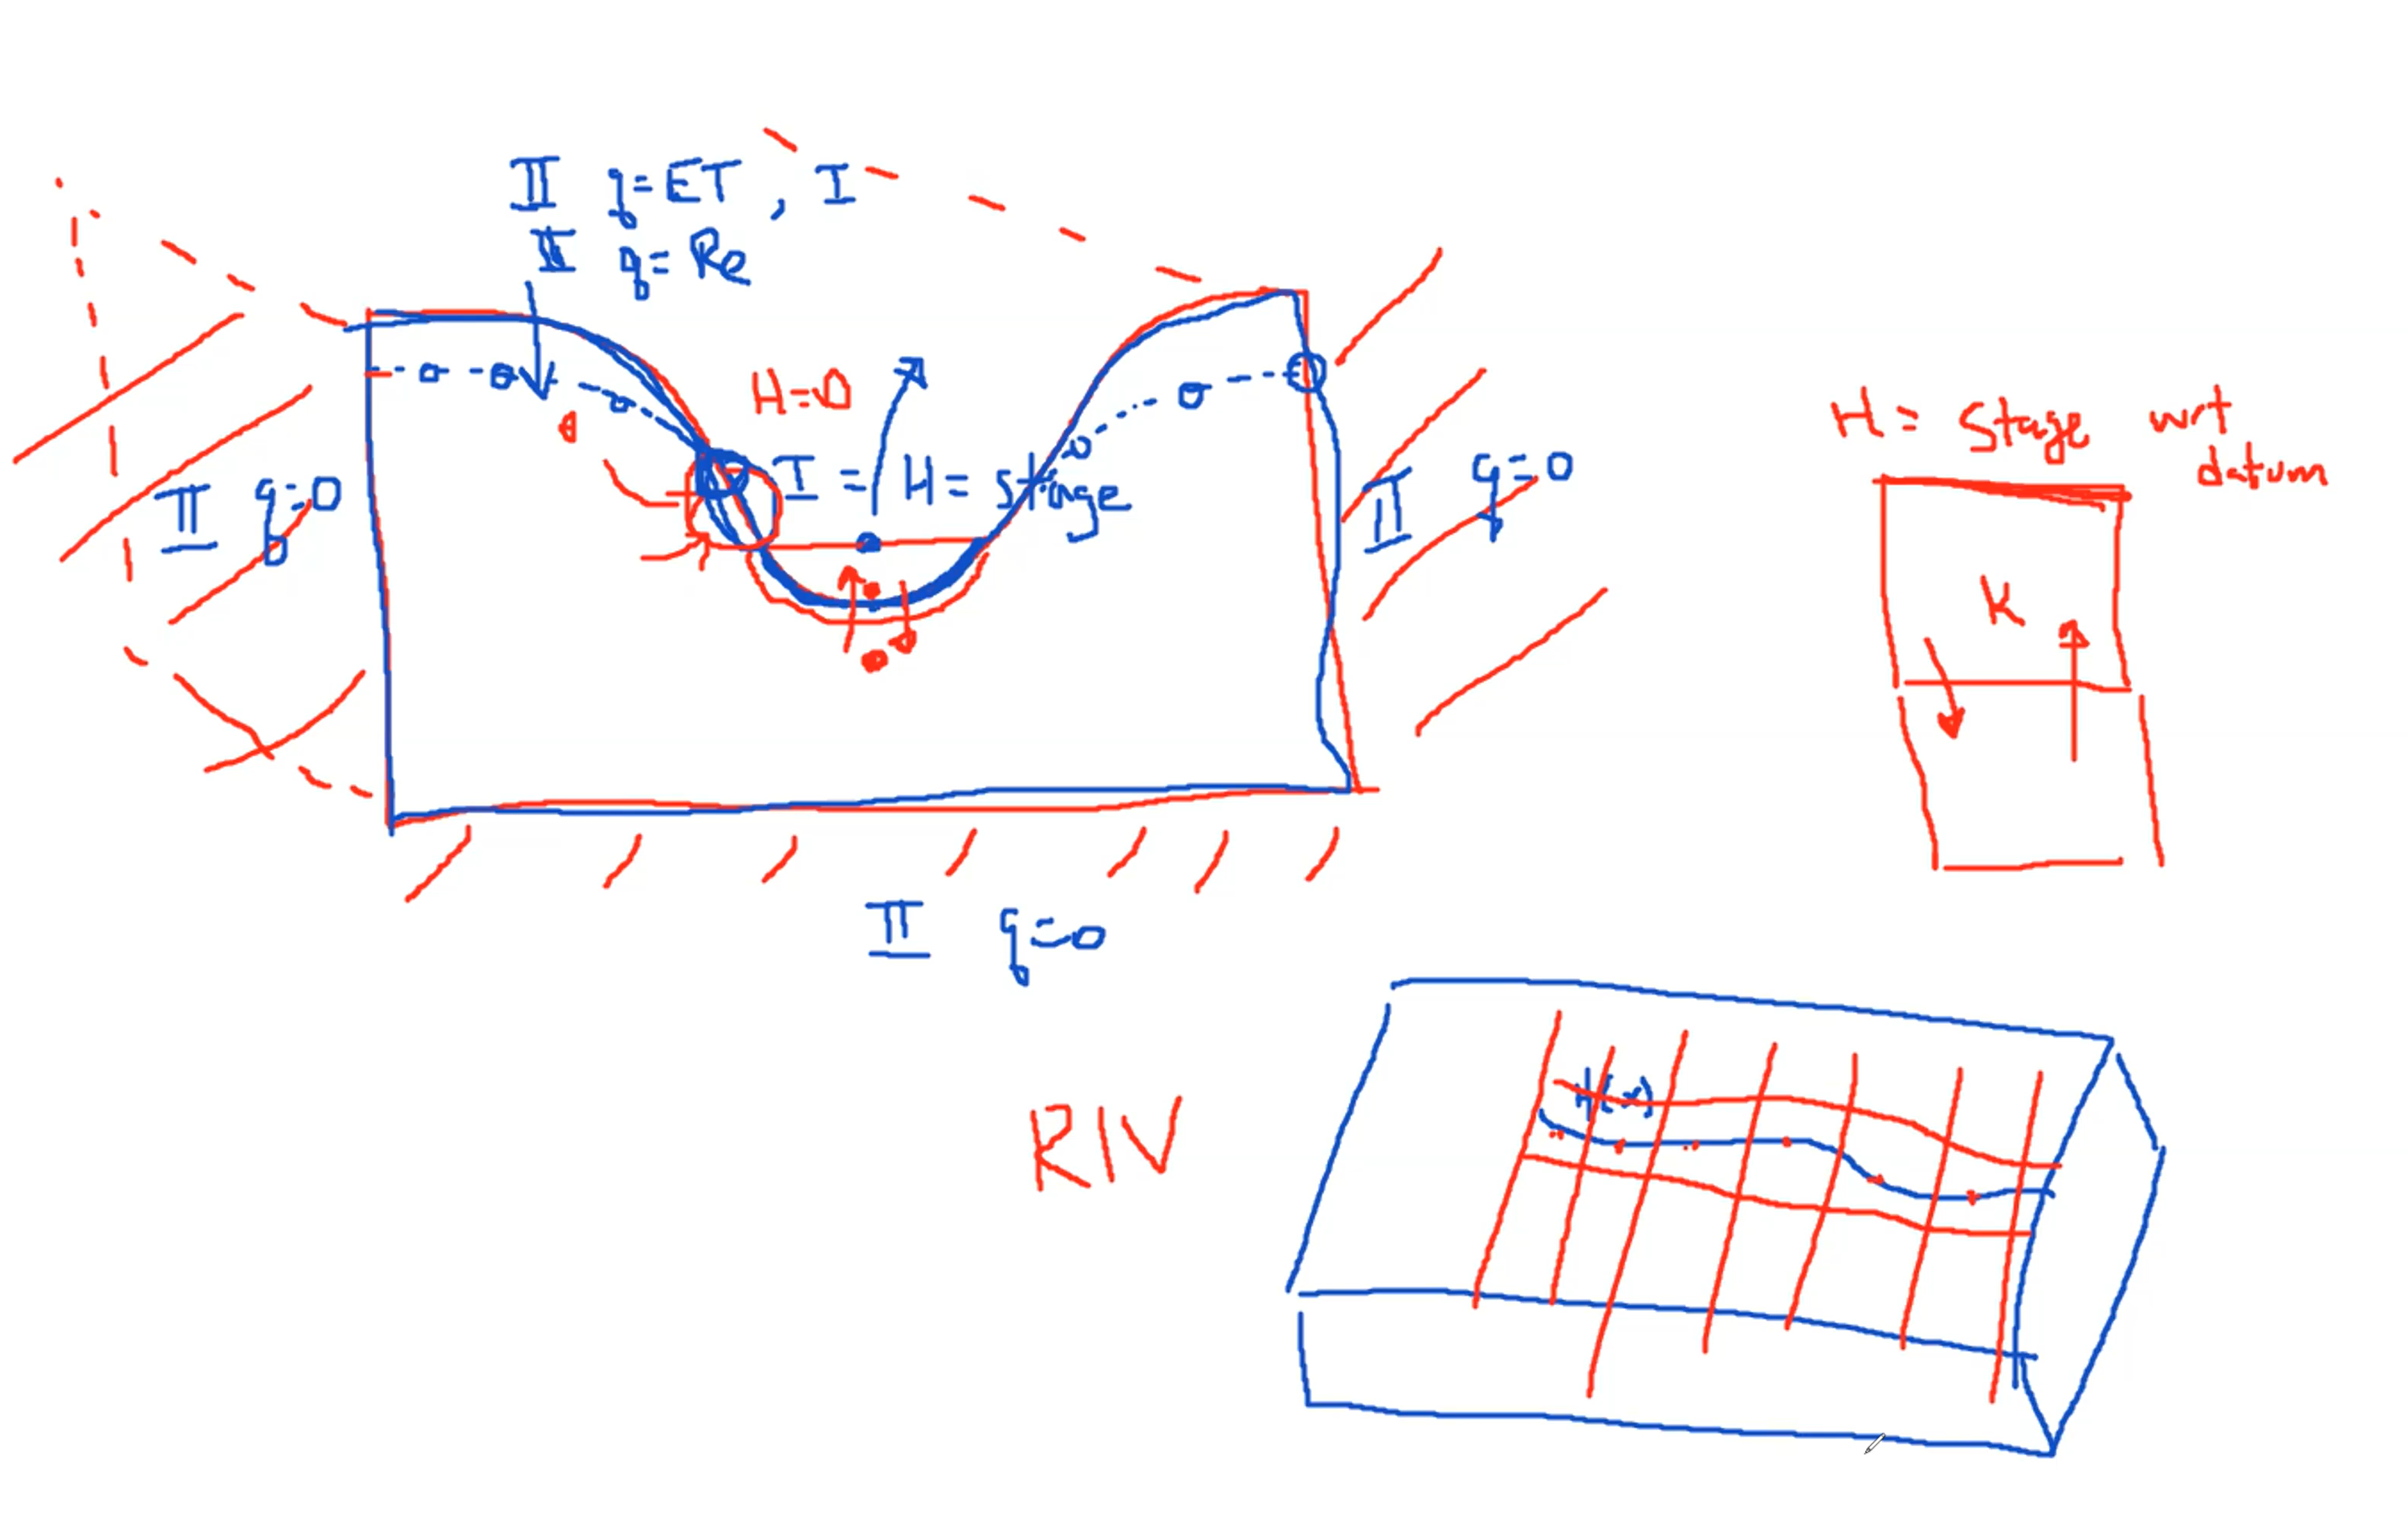 II q=ET, I
II q=Re
H=0
I = H= stage
II q=0
II q=0
II q=0
H= Stage wrt
datum
K
RIV
H(x)